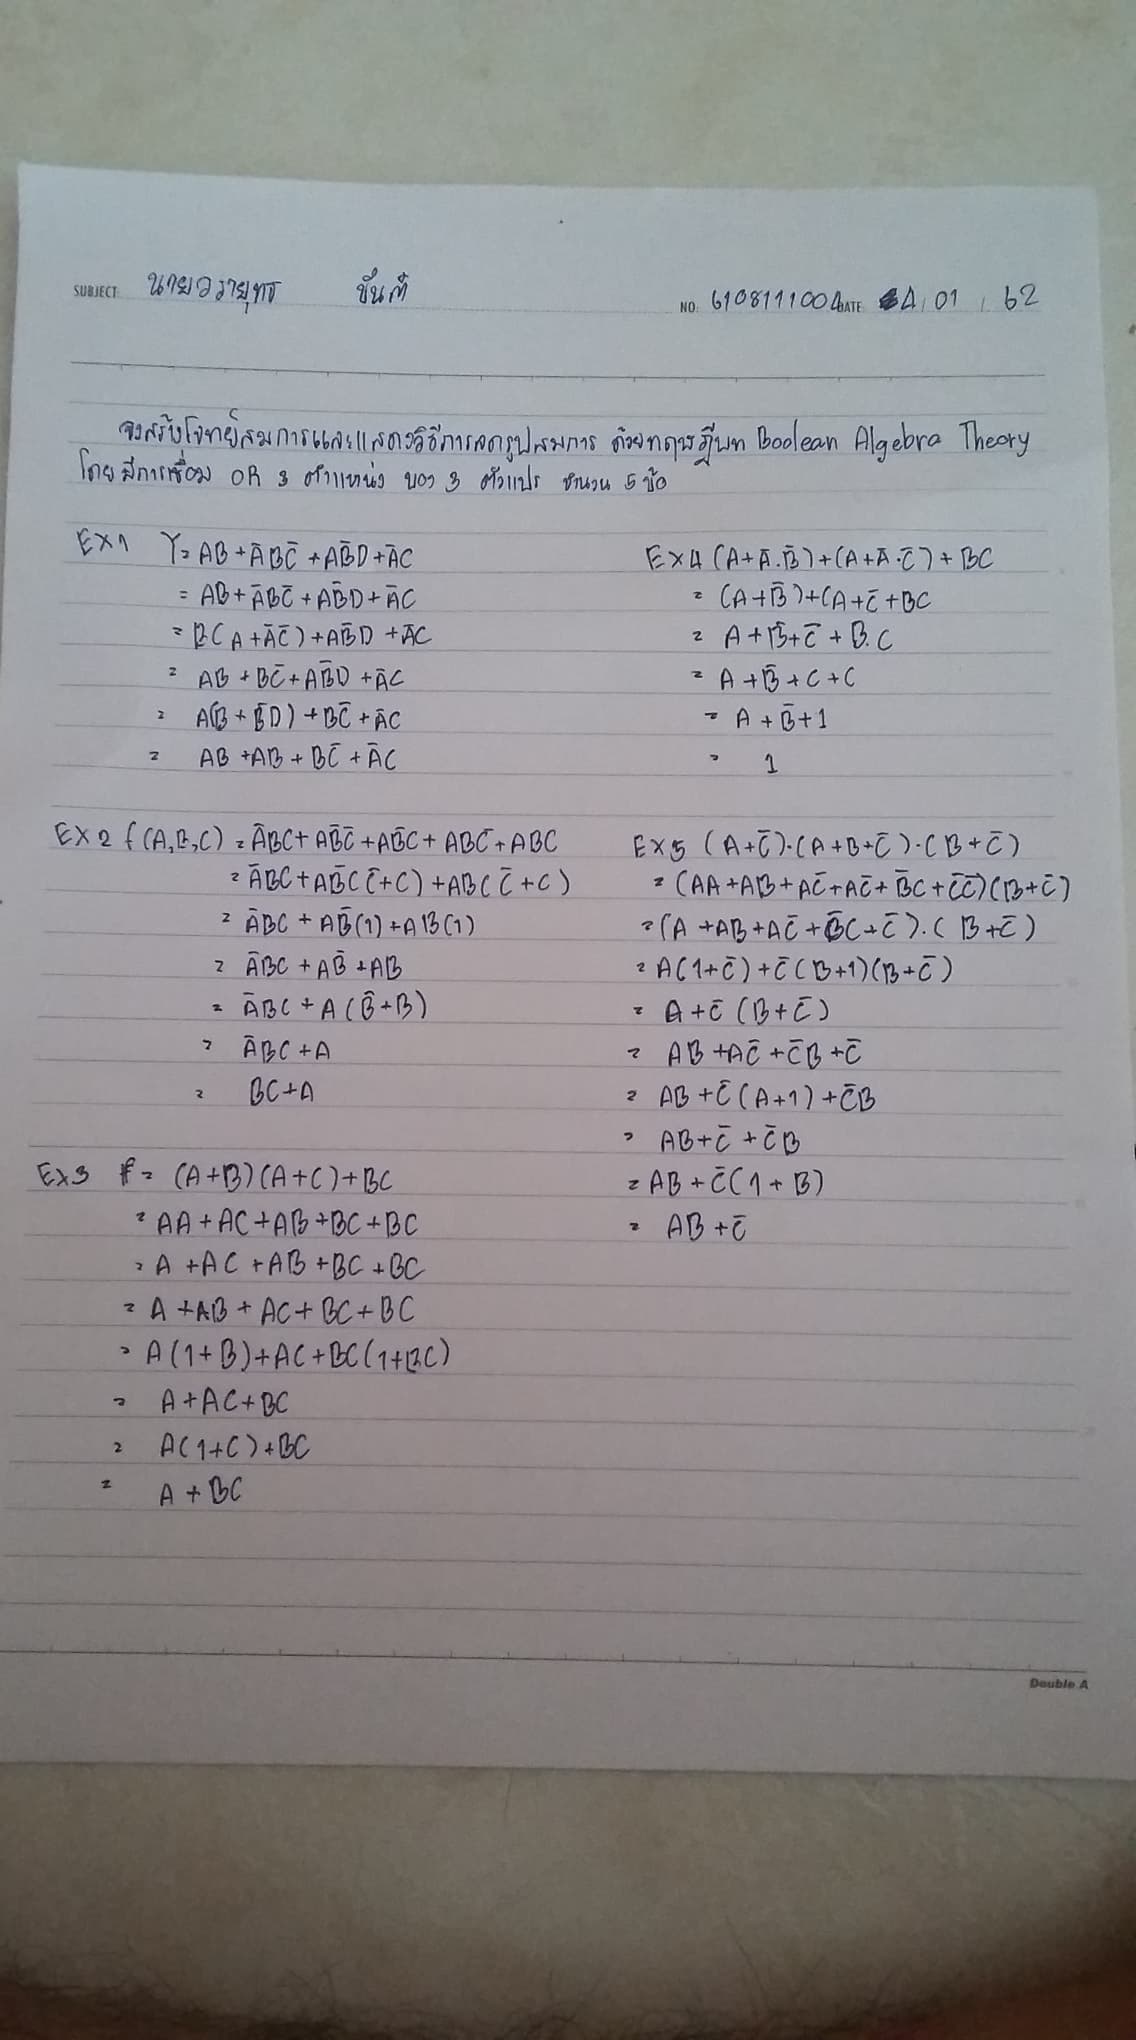 SUBJECT: นายวรายุทธ ขันคำ NO: 6108111004 DATE 4 / 01 / 62
จงสร้างโจทย์สมการและแสดงวิธีการลดรูปสมการ ด้วยทฤษฎีบท Boolean Algebra Theory
โดยมีการเชื่อม OR 3 ตำแหน่ง ของ 3 ตัวแปร จำนวน 5 ข้อ
EX1 Y= AB + ĀBC̄ + AB̄D + ĀC
= AB + ĀBC̄ + AB̄D + ĀC
= B(A + ĀC̄) + AB̄D + ĀC
= AB + BC̄ + AB̄D + ĀC
= A(B + B̄D) + BC̄ + ĀC
= AB + AB + BC̄ + ĀC
EX2 f(A,B,C) = ĀBC + AB̄C̄ + AB̄C + ABC̄ + ABC
= ĀBC + AB̄C(C̄+C) + AB(C̄+C)
= ĀBC + AB̄(1) + AB(1)
= ĀBC + AB̄ + AB
= ĀBC + A(B̄+B)
= ĀBC + A
= BC + A
EX3 f= (A+B)(A+C)+BC
= AA + AC + AB + BC + BC
= A + AC + AB + BC + BC
= A + AB + AC + BC + BC
= A(1+B)+AC+BC(1+BC)
= A+AC+BC
= A(1+C)+BC
= A + BC
EX4 (A+Ā.B̄)+(A+Ā.C̄) + BC
= (A+B̄)+(A+C̄+BC
= A+B̄+C̄+B.C
= A+B̄+C+C
= A+B̄+1
= 1
EX5 (A+C̄).(A+B+C̄).(B+C̄)
= (AA+AB+AC̄+AC̄+B̄C+C̄C̄)(B+C̄)
= (A+AB+AC̄+B̄C+C̄).(B+C̄)
= A(1+C̄)+C̄(B+1)(B+C̄)
= A+C̄(B+C̄)
= AB+AC̄+C̄B+C̄
= AB+C̄(A+1)+C̄B
= AB+C̄+C̄B
= AB+C̄(1+B)
= AB+C̄
Double A